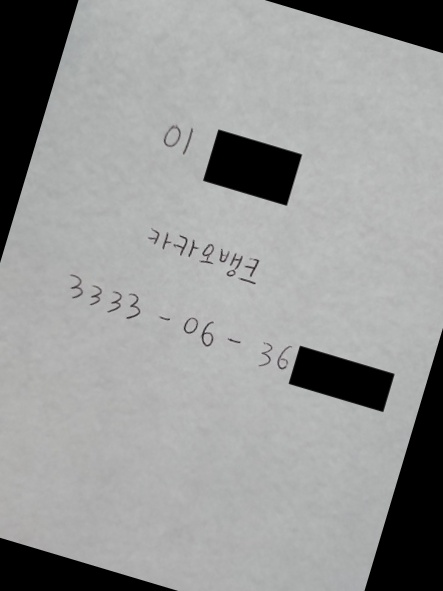 이
카카오뱅크
3333 - 06 - 36